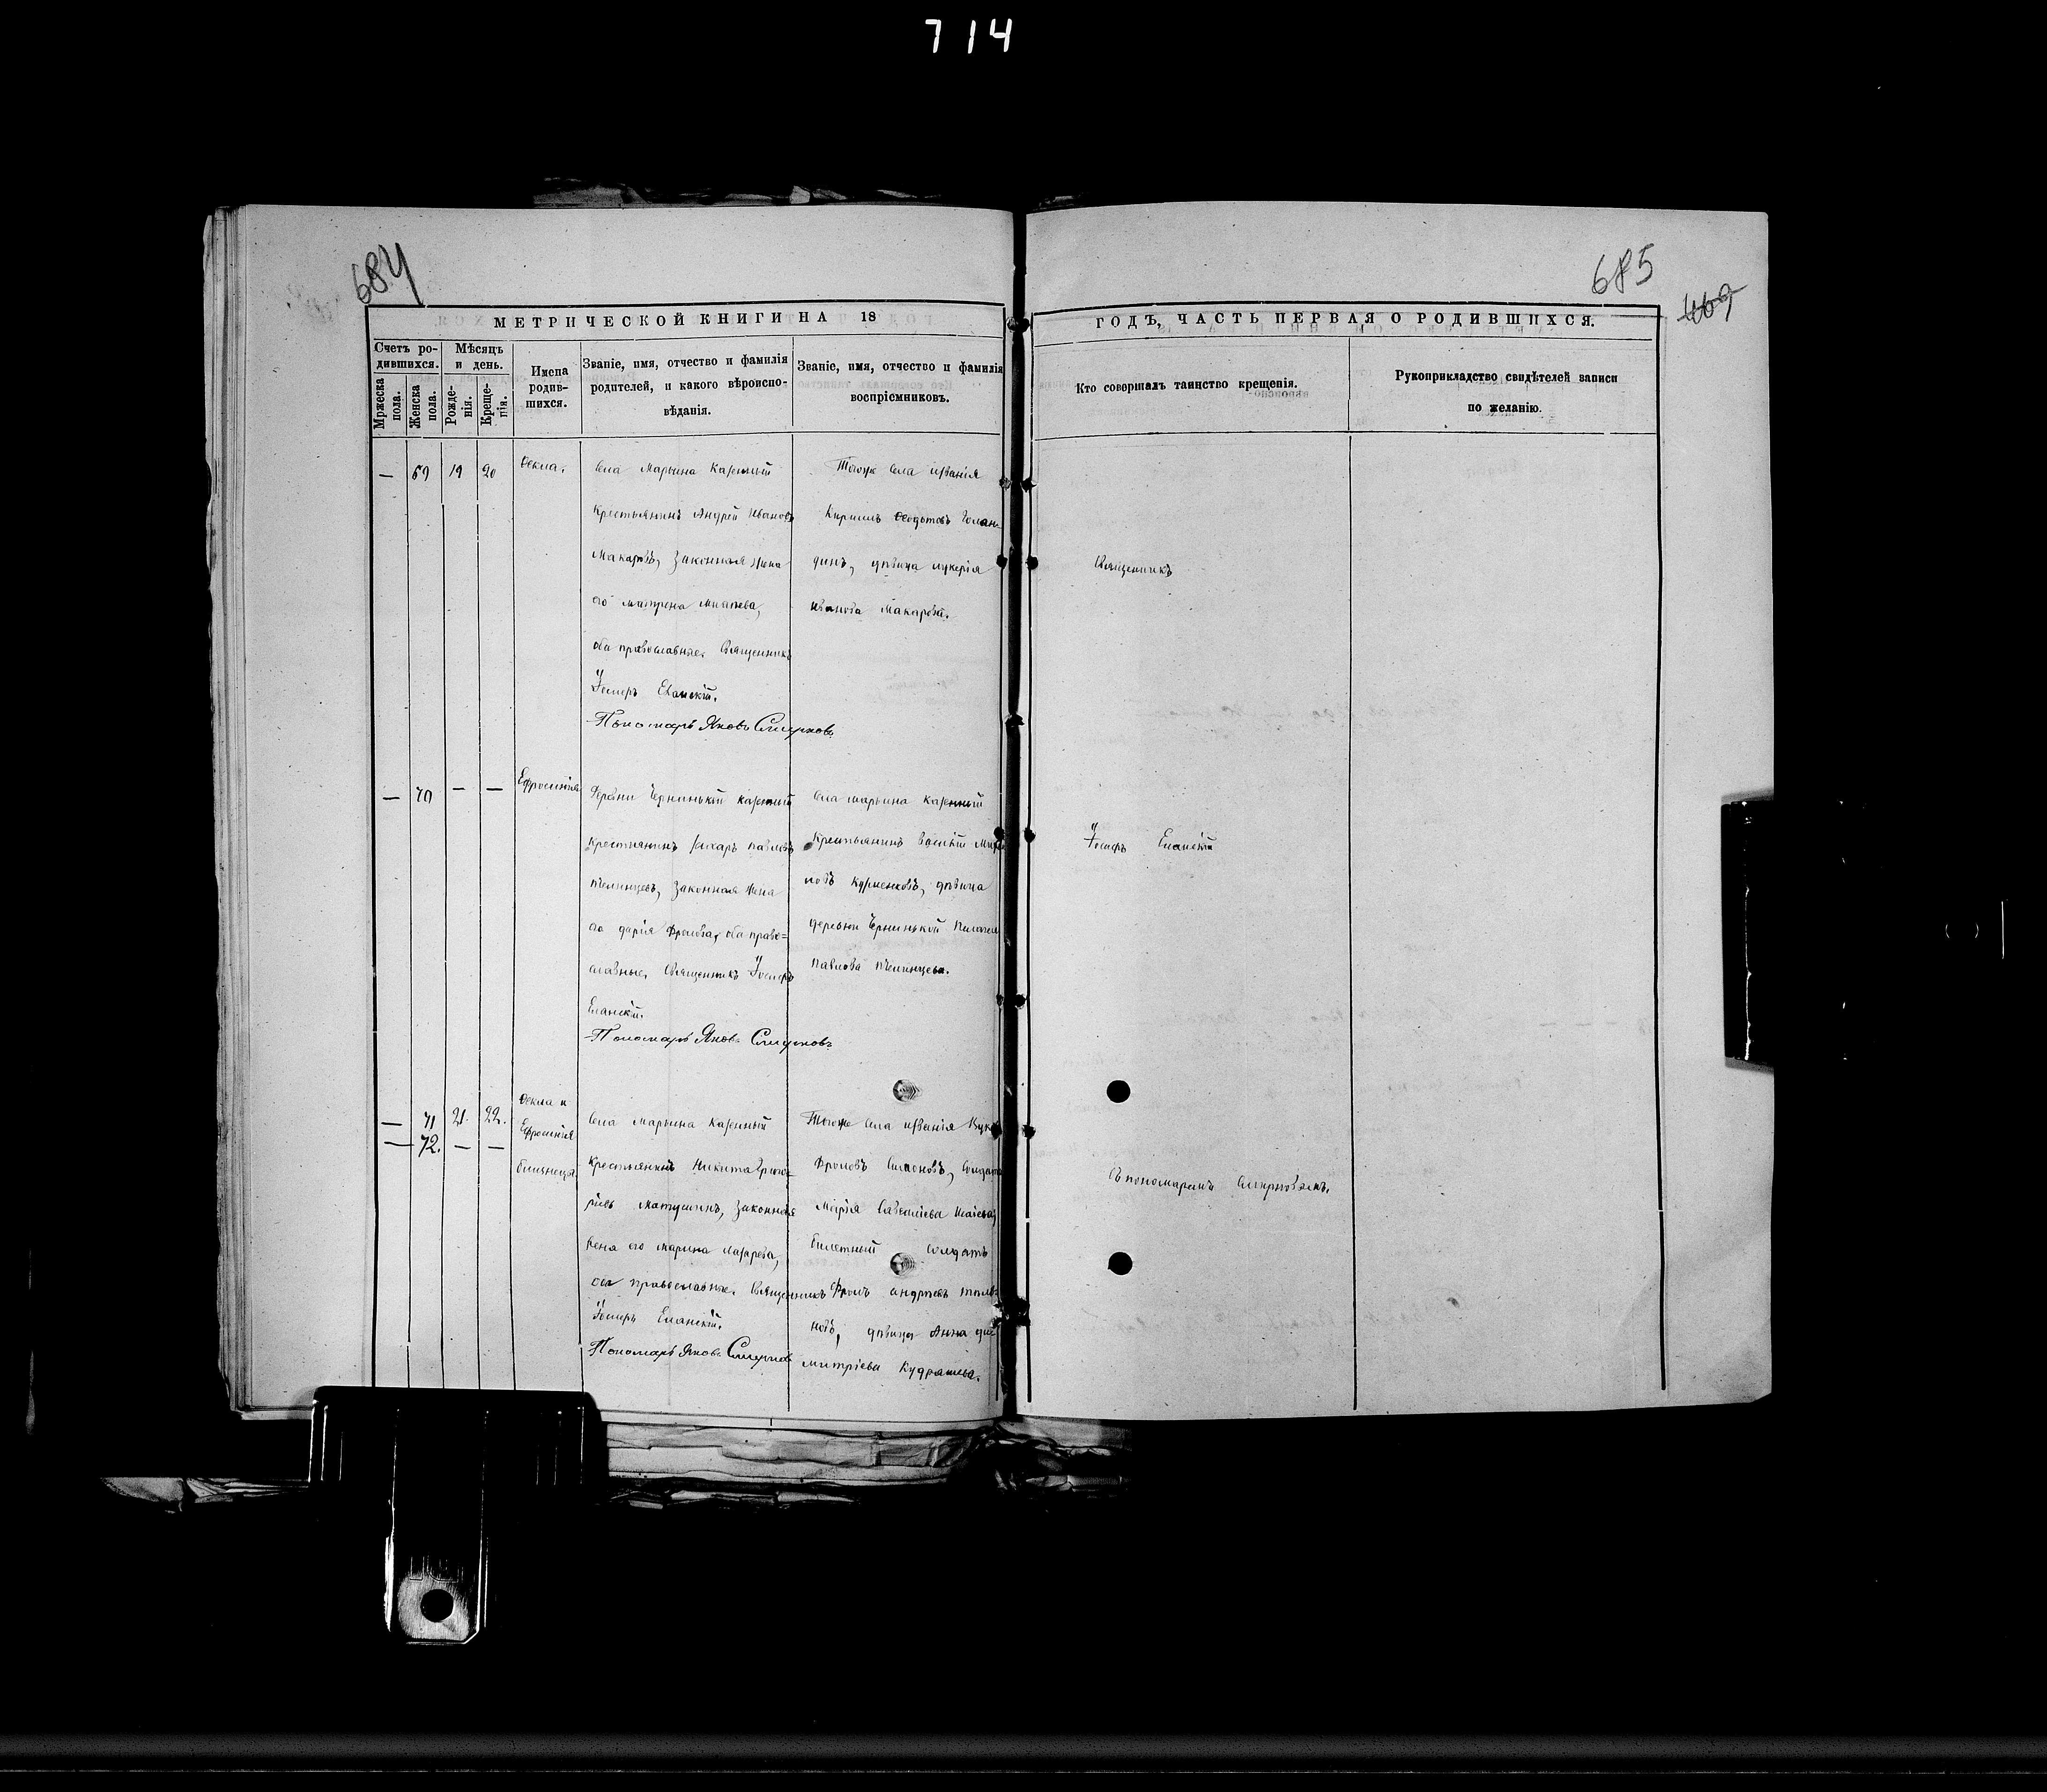 714
684
МЕТРИЧЕСКОЙ КНИГИ НА 18
Счетъ ро-
дившихся.
Мѣсяцъ
и день.
Мржеска
пола.
Женска
пола.
Рожде-
нія.
Креще-
нія.
Имена
родив-
шихся.
Званіе, имя, отчество и фамилія
родителей, и какого вѣроиспо-
вѣданія.
Званіе, имя, отчество и фамилія
воспріемниковъ.
— 69 19 20
Ѳекла.
Села Марьина Казенный
Крестьянинъ Андрей Ивановъ
Макаровъ, Законная Жена
его Матрена
оба православные. Священникъ
Іосифъ Еланскій.
Пономарь Яковъ Смирновъ
Тогоже Села
Кирилъ Ѳедотовъ Голан-
динъ, дѣвица лукерія
Иванова Макарова.
— 70 — —
Ефросинія
Деревни Чернинькій казенный
Крестьянинъ Захаръ павловъ
Законная Жена
его дарія Фролова, оба право=
славные. Священникъ Іосифъ
Еланскій.
Пономарь Яковъ Смирновъ
Села марьина казенный
Крестьянинъ
новъ дѣвица
деревни Чернинькой
павлова
— 71 21. 22.
— 72. — —
Ѳекла и
Ефросинія
близнеца.
Села Марьина Казенный
Крестьянинъ Никита Григо-
рьевъ Матушинъ, Законная
Жена его Марина Лазарева,
оба православные. Священникъ
Іосифъ Еланскій.
Пономарь Яковъ Смирнов
Тогоже Села
Фроловъ
Марія
билетный солдатъ
Фролъ андреевъ
новъ, дѣвица Анна ди
митріева Кудряшева.
685
469
ГОДЪ, ЧАСТЬ ПЕРВАЯ О РОДИВШИХСЯ.
Кто совершалъ таинство крещенія.
Рукоприкладство свидѣтелей записи
по желанію.
Священникъ
Іосифъ Еланскій
Съ пономаремъ Смирновымъ.